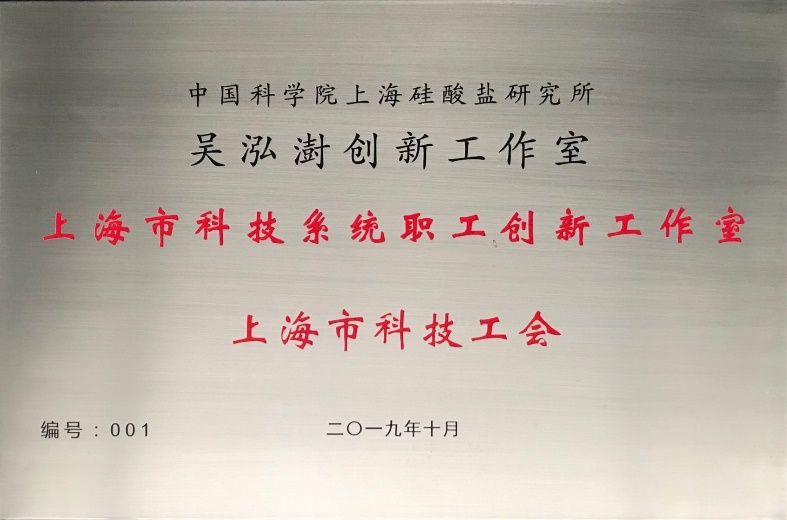 中国科学院上海硅酸盐研究所
吴泓澍创新工作室
上海市科技系统职工创新工作室
上海市科技工会
编号：001
二〇一九年十月